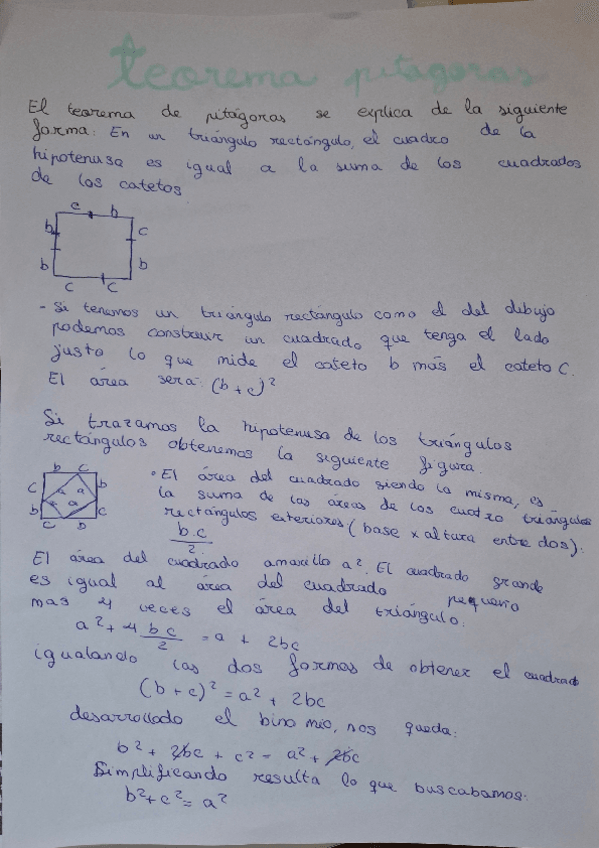 teorema pitágoras
El teorema de pitágoras se explica de la siguiente
forma: En un triángulo rectángulo, el cuadro de la
hipotenusa es igual a la suma de los cuadrados
de los catetos
c b
b c
b b
c c
- Si tenemos un triángulo rectángulo como el del dibujo
podemos construir un cuadrado que tenga el lado
justo lo que mide el cateto b más el cateto c.
El área será: (b+c)²
Si trazamos la hipotenusa de los triángulos
rectángulos obtenemos la siguiente figura.
b c
c a a b
b a a c
c b
• El área del cuadrado siendo la misma, es
la suma de las áreas de los cuatro triángulos
rectángulos exteriores (base x altura entre dos).
b.c/2
El área del cuadrado amarillo a². El cuadrado grande
es igual al área del cuadrado pequeño
mas 4 veces el área del triángulo:
a² + 4 bc/2 = a + 2bc
igualando las dos formas de obtener el cuadrado
(b + c)² = a² + 2bc
desarrollado el binomio, nos queda:
b² + 2bc + c² = a² + 2bc
Simplificando resulta lo que buscabamos:
b²+c²= a²